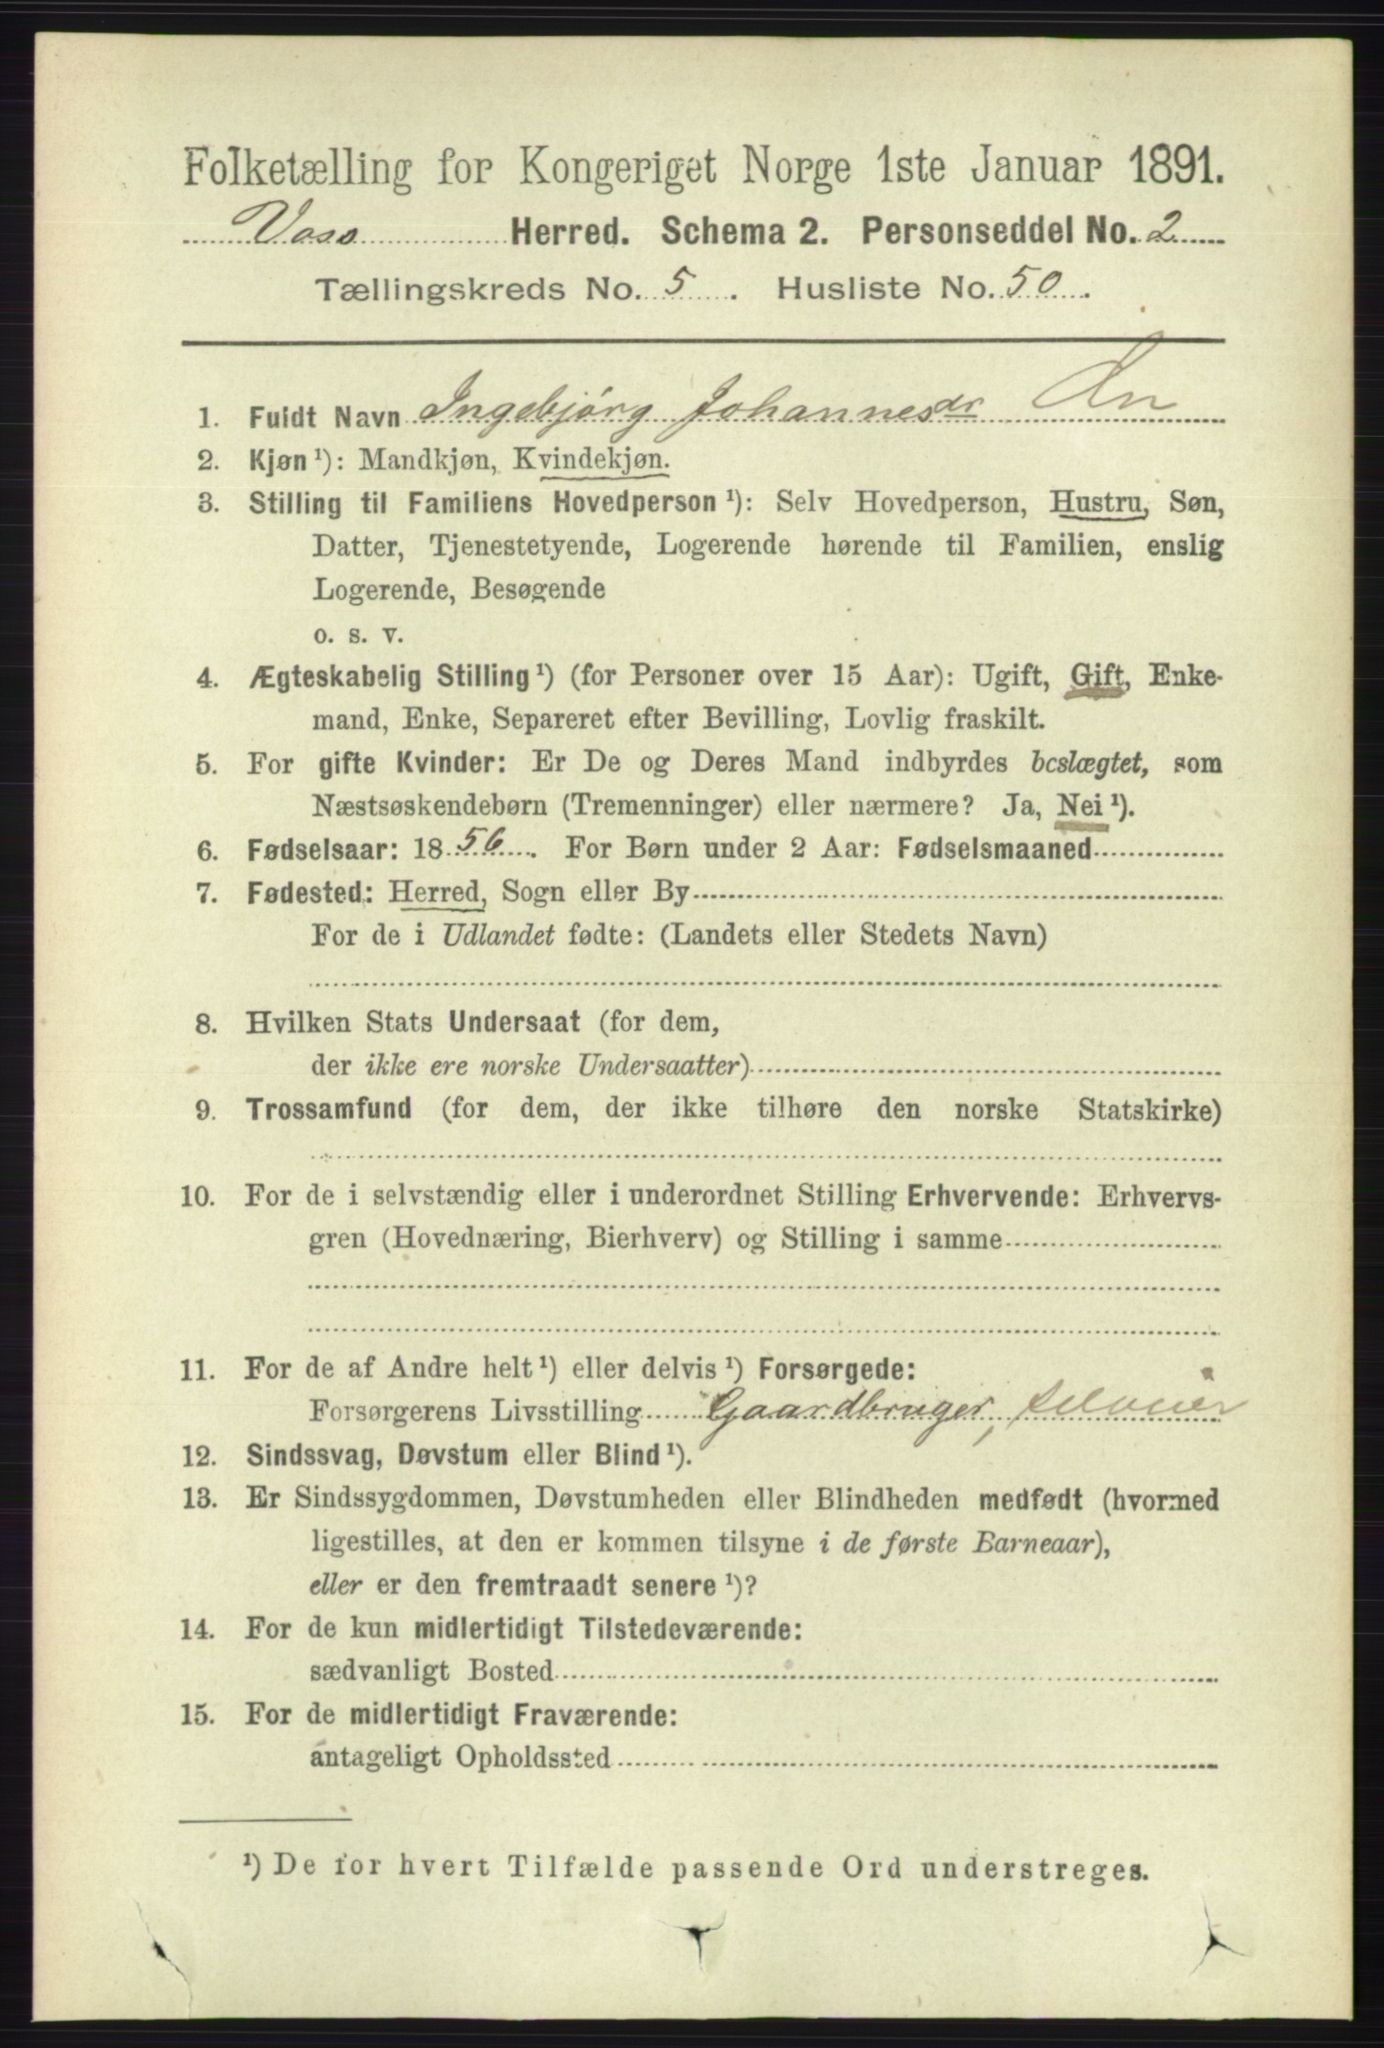 Folketælling for Kongeriget Norge 1ste Januar 1891.
Voss Herred. Schema 2. Personseddel No. 2
Tællingskreds No. 5. Husliste No. 50.
1. Fuldt Navn Ingebjørg Johannesdr
2. Kjøn¹): Mandkjøn, Kvindekjøn.
3. Stilling til Familiens Hovedperson¹): Selv Hovedperson, Hustru, Søn,
Datter, Tjenestetyende, Logerende hørende til Familien, enslig
Logerende, Besøgende
o. s. v.
4. Ægteskabelig Stilling¹) (for Personer over 15 Aar): Ugift, Gift, Enke-
mand, Enke, Separeret efter Bevilling, Lovlig fraskilt.
5. For gifte Kvinder: Er De og Deres Mand indbyrdes beslægtet, som
Næstsøskendebørn (Tremenninger) eller nærmere? Ja, Nei¹).
6. Fødselsaar: 1856. For Børn under 2 Aar: Fødselsmaaned
7. Fødested: Herred, Sogn eller By
For de i Udlandet fødte: (Landets eller Stedets Navn)
8. Hvilken Stats Undersaat (for dem,
der ikke ere norske Undersaatter)
9. Trossamfund (for dem, der ikke tilhøre den norske Statskirke)
10. For de i selvstændig eller i underordnet Stilling Erhvervende: Erhvervs-
gren (Hovednæring, Bierhverv) og Stilling i samme
11. For de af Andre helt¹) eller delvis¹) Forsørgede:
Forsørgerens Livsstilling Gaardbruger, selveier
12. Sindssvag, Døvstum eller Blind¹).
13. Er Sindssygdommen, Døvstumheden eller Blindheden medfødt (hvormed
ligestilles, at den er kommen tilsyne i de første Barneaar),
eller er den fremtraadt senere¹)?
14. For de kun midlertidigt Tilstedeværende:
sædvanligt Bosted
15. For de midlertidigt Fraværende:
antageligt Opholdssted
¹) De for hvert Tilfælde passende Ord understreges.